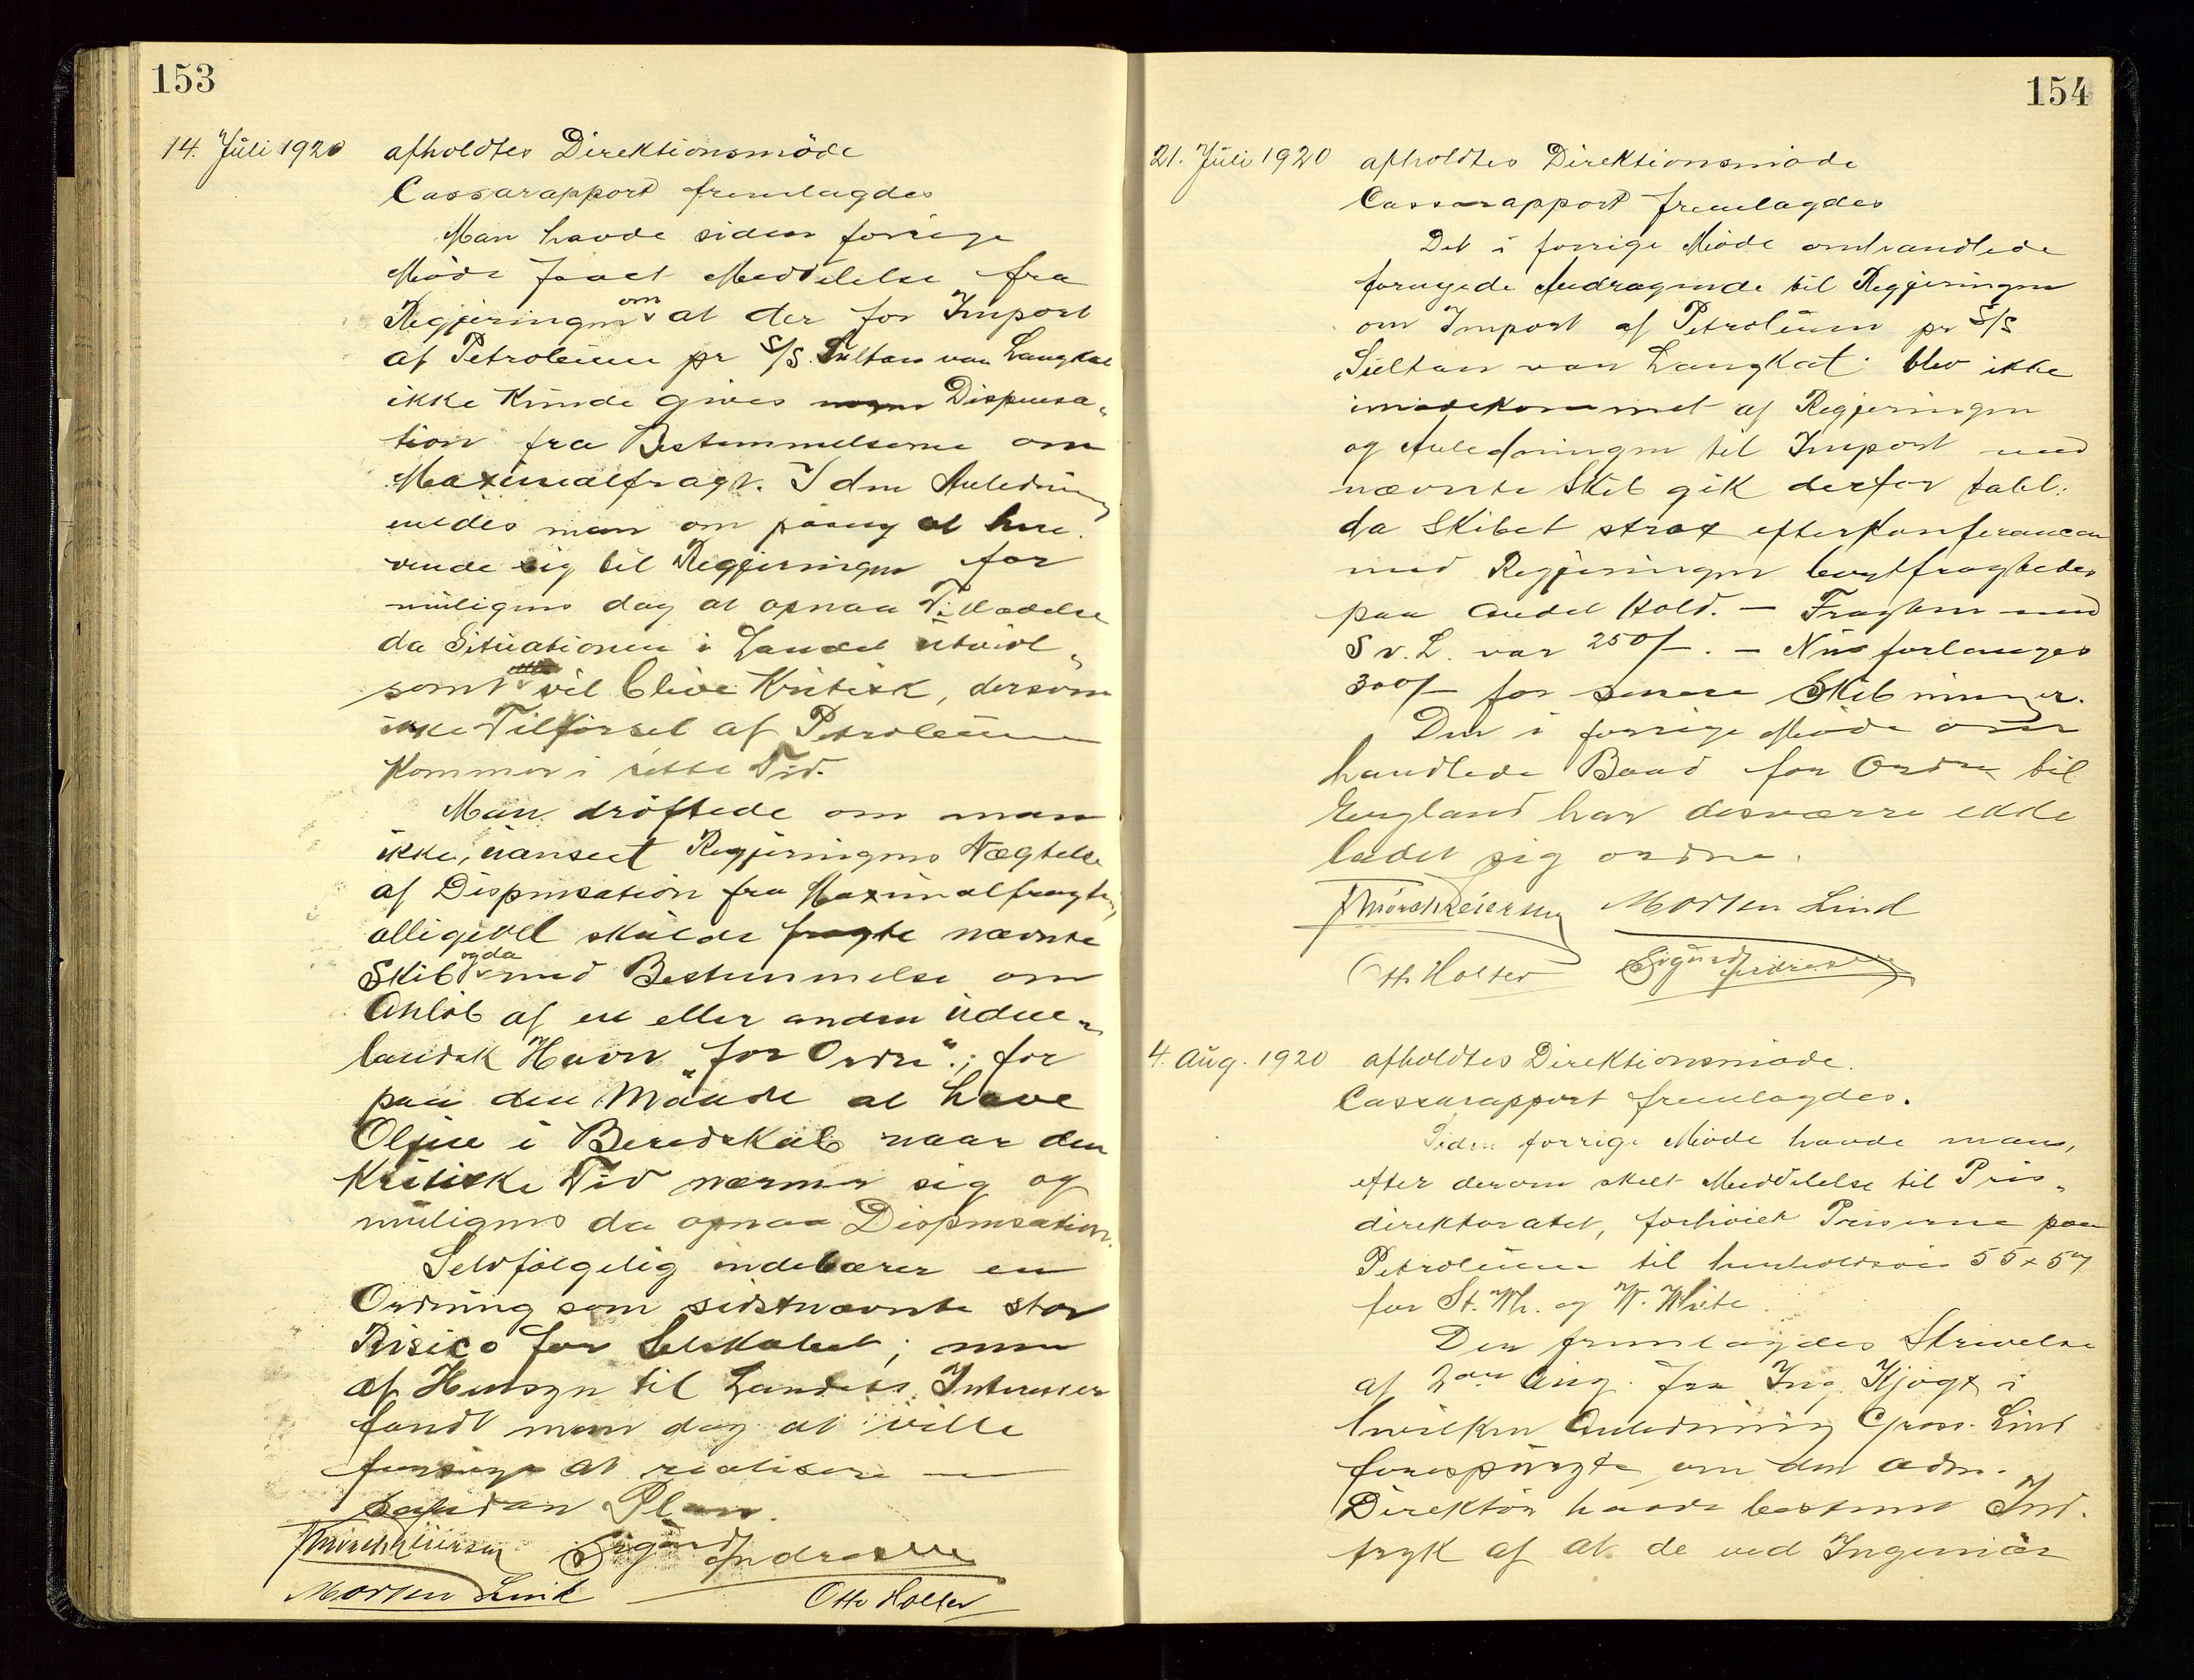 153
14. Juli 1920 afholdtes Direktionsmöde
Cassarapport fremlagdes
Man havde siden forrige
Möde faaet Meddelelse fra
Regjeringen om at der for Import
af Petroleum pr S/S. Sultan van Langkat
ikke kunde gives Dispensa-
tion fra Bestemmelserne om
Maximalfragt. I den Anledning
enedes man om paany at hen-
vende sig til Regjeringen for
muligens dog at opnaa Tilladelse
da Situationen i Landet utvivl-
somt vil blive Kritisk, dersom
ikke Tilförsel af Petroleum
kommer i rette Tid.
Man dröftede om man
ikke, uanseet Regjeringens Nægtelse
af Dispensation fra Maximalfragten,
alligevel skulde fragte nævnte
Skib og da med Bestemmelse om
Anlöb af en eller anden uden-
landsk Havn "for Ordre"; for
paa den Maade at have
Oljen i Beredskab naar den
Kritiske Tid nærmer sig og
muligens da opnaa Dispensation.
Selvfölgelig indebærer en
Ordning som sidstnævnte stor
Risico for Selskabet; men
af Hensyn til Landets Interesser
fandt man dog at ville
forsöge at realisere en
saadan Plan.
Sigurd Andresen
Morten Lind Otto Holter
154
21. Juli 1920 afholdtes Direktionsmöde
Cassarapport fremlagdes
Det i forrige Möde omhandlede
fornyede Andragende til Regjeringen
om Import af Petroleum pr S/S
"Sultan van Langkat" blev ikke
imödekommet af Regjeringen
og Anledningen til Import med
nævnte Skib gik derfor tabt,
da Skibet strax efter Konferancen
med Regjeringen bortfragtedes
paa andet Hold. — Fragten med
S v. L. var 250/-. — Nu forlanges
300/- for senere Skibninger.
Den i forrige Möde om
handlede Baad for Ordre til
England har desværre ikke
ladet sig ordne.
Morten Lind
Otto Holter Sigurd Andresen
4. Aug. 1920 afholdtes Direktionsmöde.
Cassarapport fremlagdes.
Siden forrige Möde havde man,
efter derom skeet Meddelelse til Pris-
direktoratet, forhöiet Priserne paa
Petroleum til henholdsvis 55 & 57
for St. Wh. og W. White.
Der fremlagdes Skrivelse
af 2den Aug. fra Ing. i
hvilken Anledning Gross. Lind
forespurgte om den adm.
Direktör havde bestemt Ind-
tryk af at de ved Ingeniör